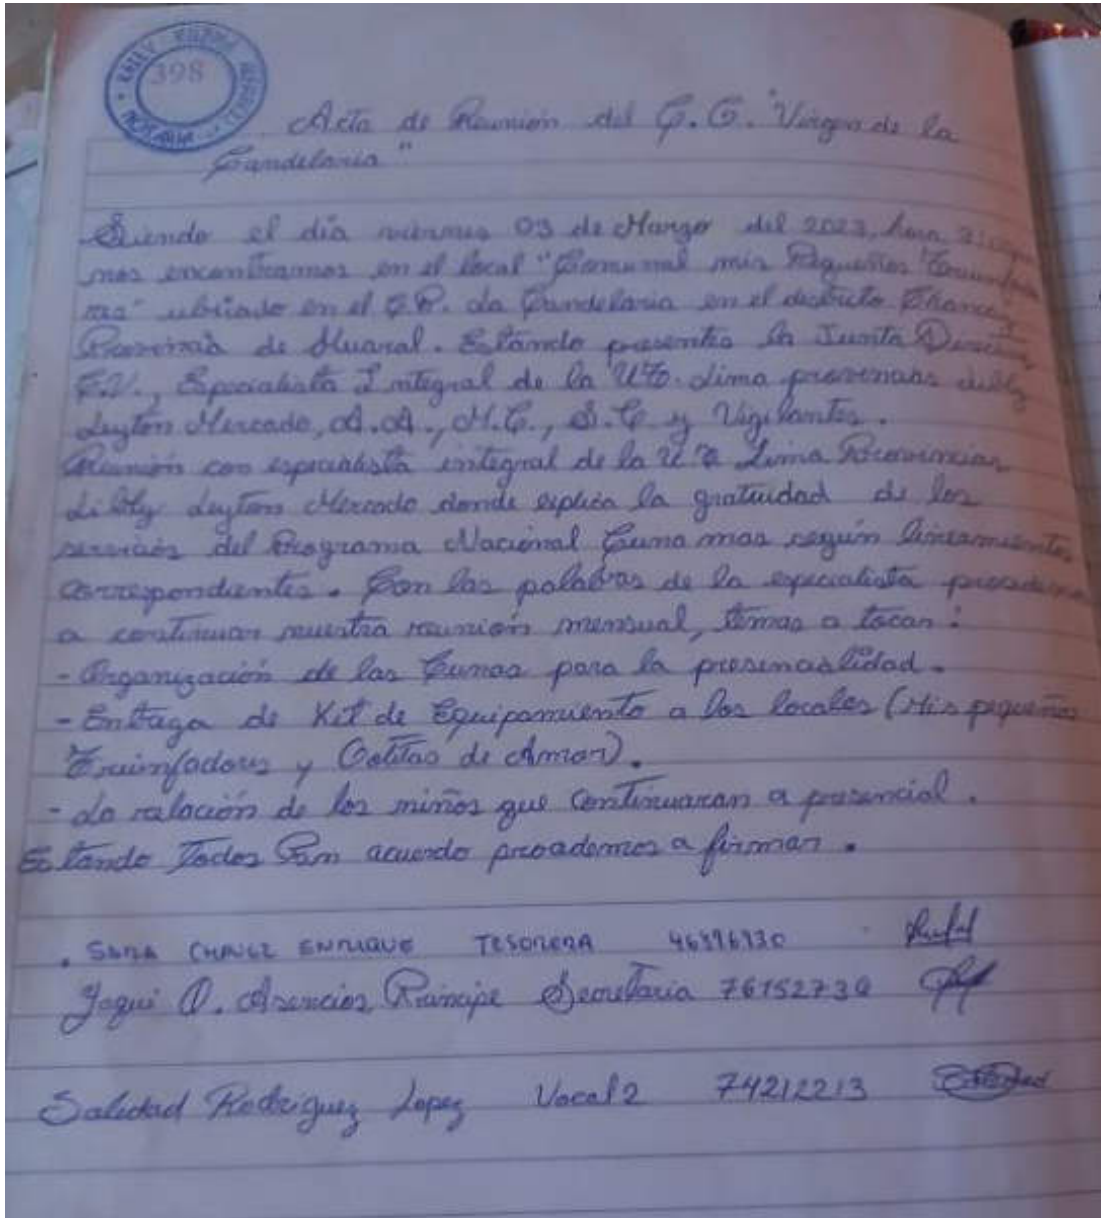 398
NOTARIA
Acta de Reunión del C.G. "Virgen de la
Candelaria"
Siendo el día viernes 03 de Marzo del 2023, hora
nos encontramos en el local "Comunal mis Pequeños
ubicado en el C.P. La Candelaria en el distrito Chancay
Provincia de Huaral. Estando presentes la Junta Directiva
Especialista Integral de la U.T. Lima provincias
Leyton Mercado, A.A., M.C., S.C y Vigilantes.
Reunión con especialista integral de la U.T Lima Provincias
Leyton Mercado donde explica la gratuidad de los
servicios del Programa Nacional Cuna mas según lineamientos
correspondientes. Con las palabras de la especialista procedemos
a continuar nuestra reunión mensual, temas a tocar:
- Organización de las Cunas para la presencialidad.
- Entrega de Kit de Equipamiento a los locales (Mis pequeños
Triunfadores y Gotitas de Amor).
- La relación de los niños que continuaran a presencial.
Estando Todos acuerdo procedemos a firmar.
CHAVEZ ENRIQUE TESORERA
Yaqui O. Asencios Principe Secretaria
Saledad Rodriguez Lopez Vocal 2 74212213